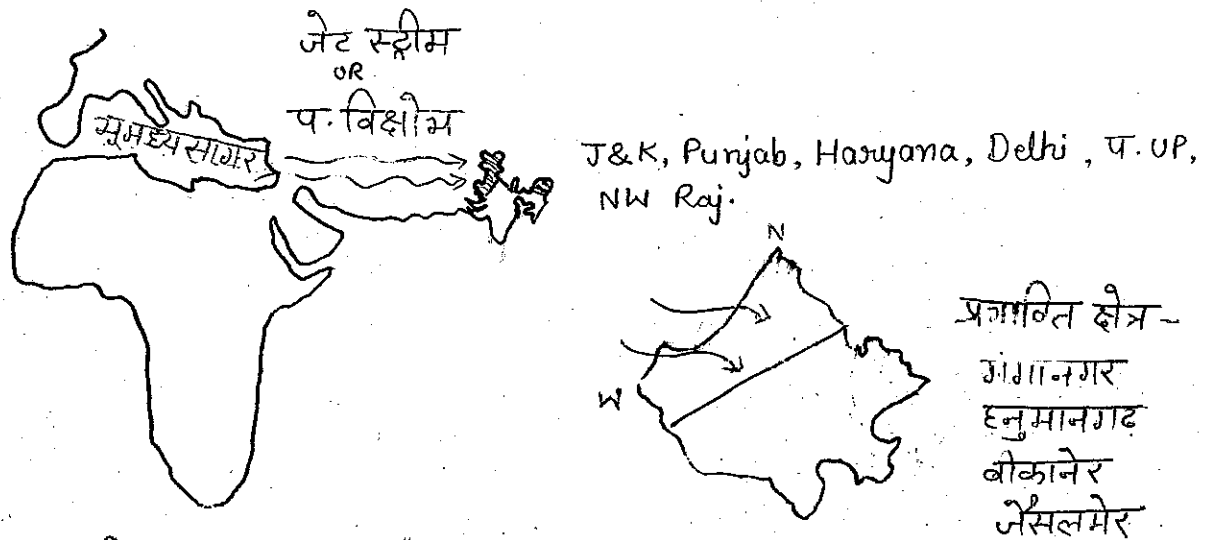 जेट स्ट्रीम
OR
प. विक्षोभ
भूमध्य सागर
J&K, Punjab, Haryana, Delhi, प. UP,
NW Raj.
N
W
प्रभावित क्षेत्र -
गंगानगर
हनुमानगढ
बीकानेर
जैसलमेर